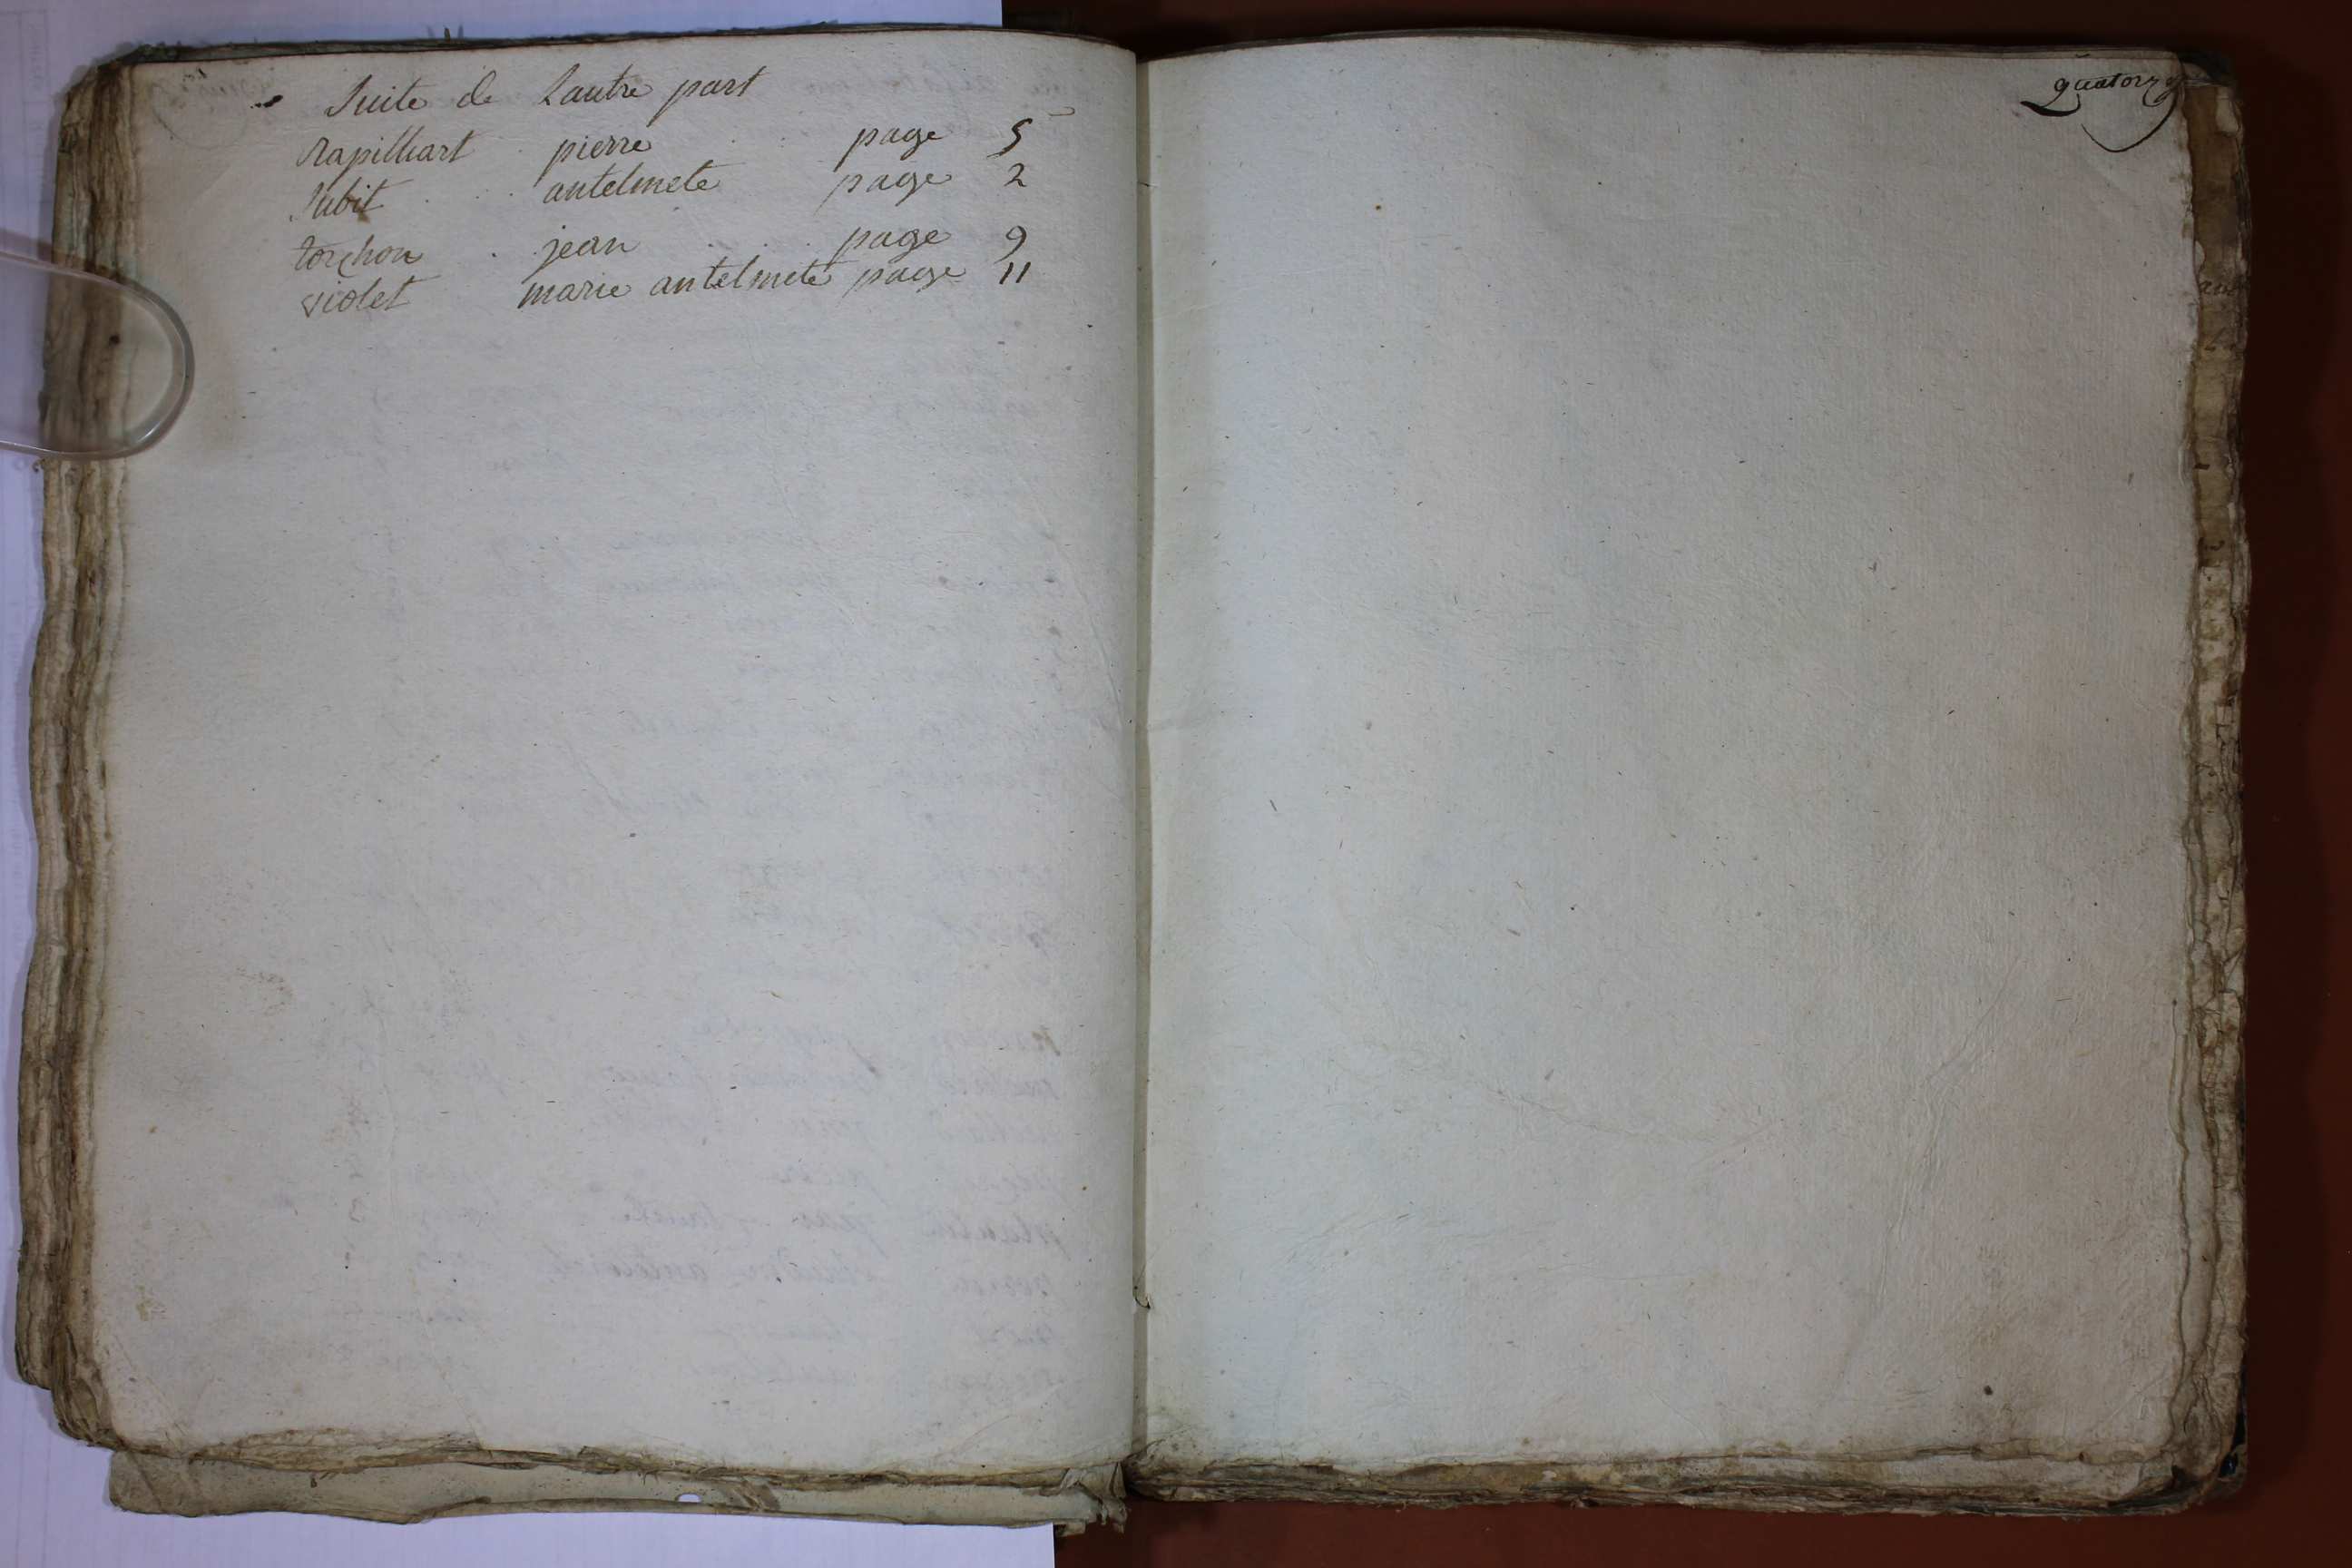 Suite de Lautre part
Rapillart pierre page 5
Subit antelmete page 2
torchon jean page 9
violet marie antelmete page 11
quatorze